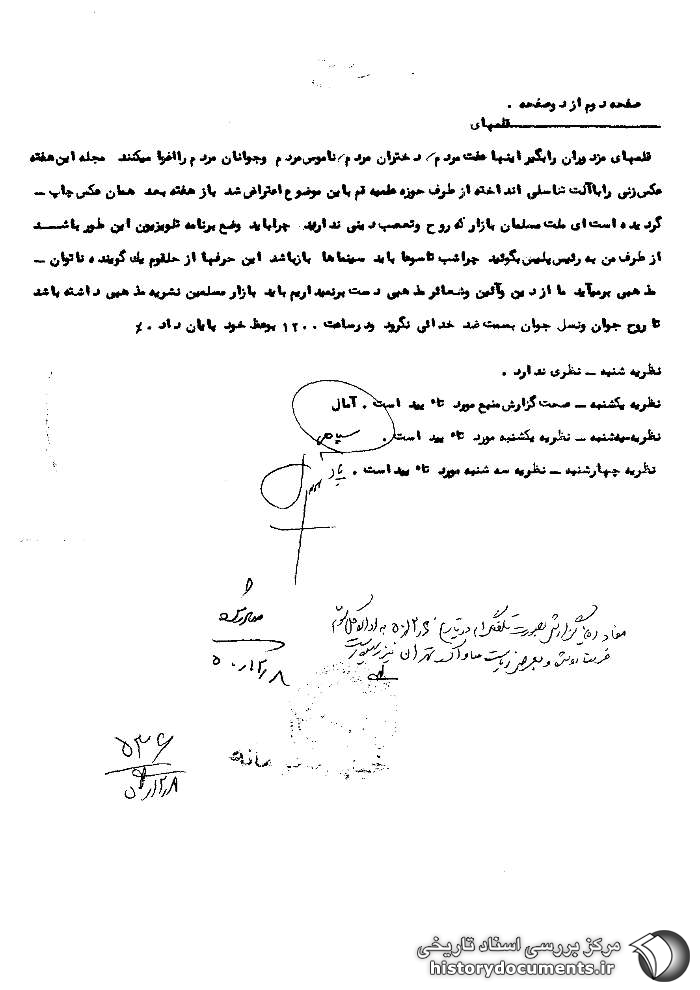 صفحه دوم از دوصفحه .
قلمهای
قلمهای مزدوران رابگیر اینها عفت مردم، دختران مردم، ناموس مردم وجوانان مردم رااغوا میکنند مجله این هفته
عکس زنی راباآلت تناسلی انداخته از طرف حوزه علمیه قم باین موضوع اعتراض شد باز هفته بعد همان عکس چاپ ـ
گردیده است ای ملت مسلمان بازار که روح وتعصب دینی ندارید چراباید وضع برنامه تلویزیون این طور باشد
از طرف من به رئیس پلیس بگوئید چراشب تاسوعا باید سینماها بازباشد این حرفها از حلقوم یك گوینده ناتوان ـ
مذهبی برمیآید ما از دین وآئین وشعائر مذهبی دست برنمیداریم باید بازار مسلمین نشریه مذهبی داشته باشد
تا روح جوان ونسل جوان بسمت ضد خدائی نگرود ودرساعت ۱۲۰۰ بوعظ خود پایان داد ./
نظریه شنبه ـ نظری ندارد .
نظریه یکشنبه ـ صحت گزارش منبع مورد تائید است . آمال
نظریه سه‌شنبه ـ نظریه یکشنبه مورد تائید است .
نظریه چهارشنبه ـ نظریه سه شنبه مورد تائید است .
مفاد گزارش بصورت تلگرام در تاریخ ۵۰/۱۲/۶ به اداره کل سوم
تهران نیز رسیده است
۵۰/۱۲/۸
۵۳۶
۵۰/۱۲/۸
مرکز بررسی اسناد تاریخی
historydocuments.ir